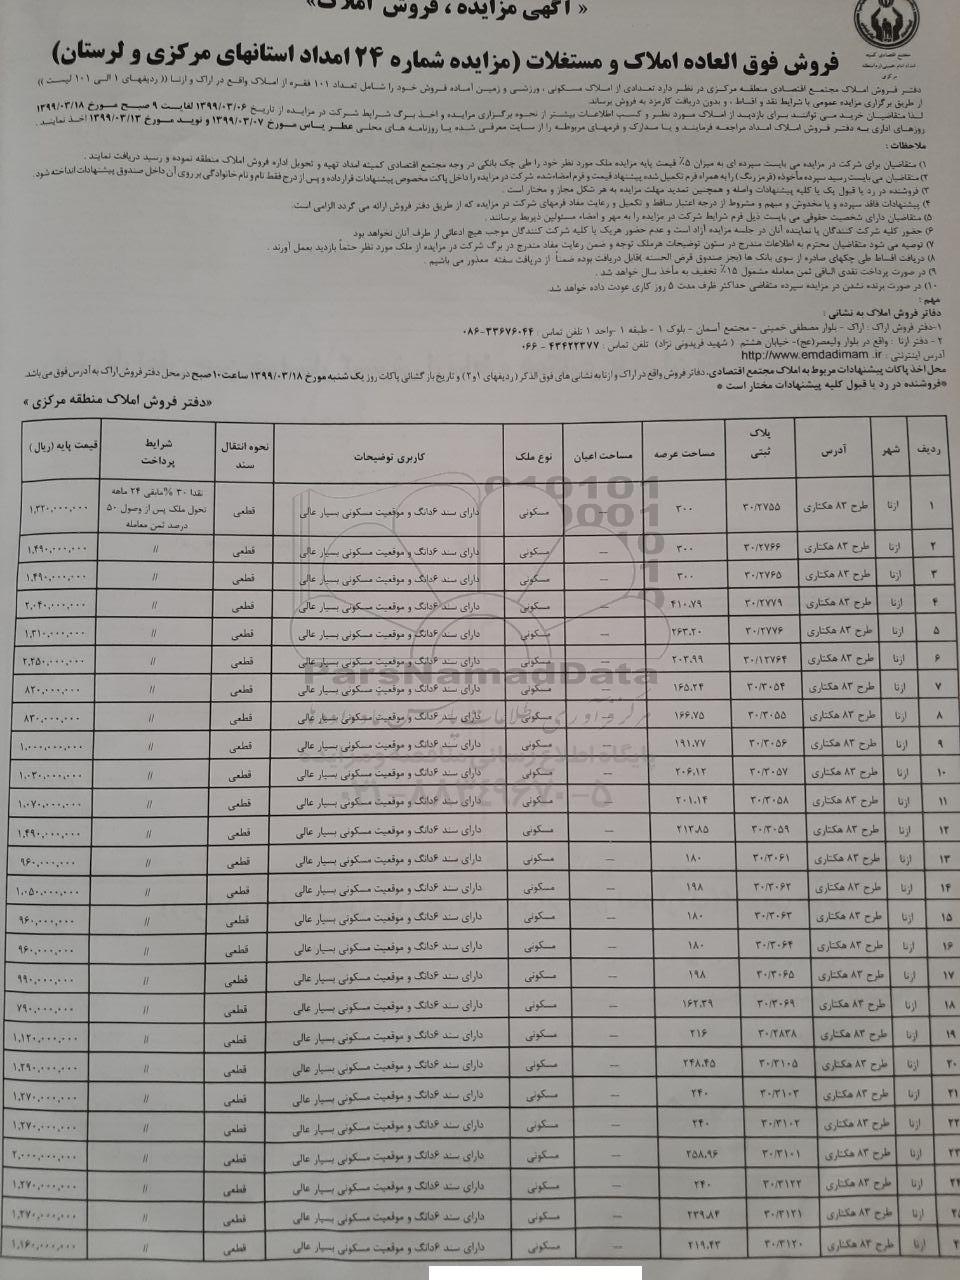 « آگهی مزایده ، فروش املاک»
مجتمع اقتصادی کمیته
امداد امام خمینی (ره) منطقه
مرکزی
فروش فوق العاده املاک و مستغلات (مزایده شماره ۲۴ امداد استانهای مرکزی و لرستان)
دفتر فروش املاک مجتمع اقتصادی منطقه مرکزی در نظر دارد تعدادی از املاک مسکونی ، ورزشی و زمین آماده فروش خود را شامل تعداد ۱۰۱ فقره از املاک واقع در اراک و ازنا (( ردیفهای ۱ الی ۱۰۱ لیست ))
از طریق برگزاری مزایده عمومی با شرایط نقد و اقساط ، و بدون دریافت کارمزد به فروش برساند.
لذا متقاضیان خرید می توانند برای بازدید از املاک مورد نظر و کسب اطلاعات بیشتر از نحوه برگزاری مزایده و اخذ برگ شرایط شرکت در مزایده از تاریخ ۱۳۹۹/۰۳/۰۶ لغایت ۹ صبح مورخ ۱۳۹۹/۰۳/۱۸
روزهای اداری به دفتر فروش املاک امداد مراجعه فرمایند و یا مدارک و فرمهای مربوطه را از سایت معرفی شده یا روزنامه های محلی عطر یاس مورخ ۱۳۹۹/۰۳/۰۷ و نوید مورخ ۱۳۹۹/۰۳/۱۳ اخذ نمایند .
ملاحظات :
۱) متقاضیان برای شرکت در مزایده می بایست سپرده ای به میزان ۵٪ قیمت پایه مزایده ملک مورد نظر خود را طی چک بانکی در وجه مجتمع اقتصادی کمیته امداد تهیه و تحویل اداره فروش املاک منطقه نموده و رسید دریافت نمایند .
۲) متقاضیان می بایست رسید سپرده مأخوذه (قرمز رنگ) را به همراه فرم تکمیل شده پیشنهاد قیمت و فرم امضاء شده شرکت در مزایده را داخل پاکت مخصوص پیشنهادات قرار داده و پس از درج فقط نام و نام خانوادگی بر روی آن داخل صندوق پیشنهادات انداخته شود.
۳) فروشنده در رد یا قبول یک یا کلیه پیشنهادات واصله و همچنین تمدید مهلت مزایده به هر شکل مجاز و مختار است .
۴) پیشنهادات فاقد سپرده و یا مخدوش و مبهم و مشروط از درجه اعتبار ساقط و تکمیل و رعایت مفاد فرمهای شرکت در مزایده که از طریق دفتر فروش ارائه می گردد الزامی است.
۵) متقاضیان دارای شخصیت حقوقی می بایست ذیل فرم شرایط شرکت در مزایده را به مهر و امضاء مسئولین ذیربط برسانند .
۶) حضور کلیه شرکت کنندگان یا نماینده آنان در جلسه مزایده آزاد است و عدم حضور هریک یا کلیه شرکت کنندگان موجب هیچ ادعائی از طرف آنان نخواهد بود
۷) توصیه می شود متقاضیان محترم به اطلاعات مندرج در ستون توضیحات هرملک توجه و ضمن رعایت مفاد مندرج در برگ شرکت در مزایده از ملک مورد نظر حتماً بازدید بعمل آورند .
۸) دریافت اقساط طی چکهای صادره از سوی بانک ها (بجز صندوق قرض الحسنه )قابل دریافت بوده ضمناً از دریافت سفته معذور می باشیم .
۹) در صورت پرداخت نقدی الباقی ثمن معامله مشمول ۱۵٪ تخفیف به مأخذ سال خواهد شد .
۱۰) در صورت برنده نشدن در مزایده سپرده متقاضی حداکثر ظرف مدت ۵ روز کاری عودت داده خواهد شد.
مهم :
دفاتر فروش املاک به نشانی :
۱-دفتر فروش اراک : اراک - بلوار مصطفی خمینی - مجتمع آسمان - بلوک ۱ - طبقه ۱ -واحد ۱ تلفن تماس : ۳۳۶۷۶۰۴۴-۰۸۶
۲ - دفتر ازنا : واقع در بلوار ولیعصر(عج)- خیابان هشتم ( شهید فریدونی نژاد) تلفن تماس : ۴۳۴۲۲۳۷۷ - ۰۶۶
آدرس اینترنتی : http://www.emdadimam .ir
محل اخذ پاکات پیشنهادات مربوط به املاک مجتمع اقتصادی، دفاتر فروش واقع در اراک و ازنا به نشانی های فوق الذکر (ردیفهای ۱و۲) و تاریخ باز گشائی پاکات روز یک شنبه مورخ ۱۳۹۹/۰۳/۱۸ ساعت ۱۰ صبح در محل دفتر فروش اراک به آدرس فوق می باشد.
*فروشنده در رد یا قبول کلیه پیشنهادات مختار است *
«دفتر فروش املاک منطقه مرکزی »
ردیف شهر آدرس پلاک ثبتی مساحت عرصه مساحت اعیان نوع ملک کاربری توضیحات نحوه انتقال سند شرایط پرداخت قیمت پایه (ریال)
۱ ازنا طرح ۸۳ هکتاری ۳۰/۲۷۵۵ ۳۰۰ --- مسکونی دارای سند ۶دانگ و موقعیت مسکونی بسیار عالی قطعی نقدا ۳۰ %مابقی ۲۴ ماهه تحول ملک پس از وصول ۵۰ درصد ثمن معامله ۱,۳۲۰,۰۰۰,۰۰۰
۲ ازنا طرح ۸۳ هکتاری ۳۰/۲۷۶۶ ۳۰۰ --- مسکونی دارای سند ۶دانگ و موقعیت مسکونی بسیار عالی قطعی // ۱,۴۹۰,۰۰۰,۰۰۰
۳ ازنا طرح ۸۳ هکتاری ۳۰/۲۷۶۵ ۳۰۰ --- مسکونی دارای سند ۶دانگ و موقعیت مسکونی بسیار عالی قطعی // ۱,۴۹۰,۰۰۰,۰۰۰
۴ ازنا طرح ۸۳ هکتاری ۳۰/۲۷۷۹ ۴۱۰.۷۹ --- مسکونی دارای سند ۶دانگ و موقعیت مسکونی بسیار عالی قطعی // ۲,۰۴۰,۰۰۰,۰۰۰
۵ ازنا طرح ۸۳ هکتاری ۳۰/۲۷۷۶ ۲۶۳.۲۰ --- مسکونی دارای سند ۶دانگ و موقعیت مسکونی بسیار عالی قطعی // ۱,۳۱۰,۰۰۰,۰۰۰
۶ ازنا طرح ۸۳ هکتاری ۳۰/۱۲۷۶۴ ۲۰۳.۹۹ --- مسکونی دارای سند ۶دانگ و موقعیت مسکونی بسیار عالی قطعی // ۲,۲۵۰,۰۰۰,۰۰۰
۷ ازنا طرح ۸۳ هکتاری ۳۰/۳۰۵۴ ۱۶۵.۲۴ --- مسکونی دارای سند ۶دانگ و موقعیت مسکونی بسیار عالی قطعی // ۸۲۰,۰۰۰,۰۰۰
۸ ازنا طرح ۸۳ هکتاری ۳۰/۳۰۵۵ ۱۶۶.۷۵ --- مسکونی دارای سند ۶دانگ و موقعیت مسکونی بسیار عالی قطعی // ۸۳۰,۰۰۰,۰۰۰
۹ ازنا طرح ۸۳ هکتاری ۳۰/۳۰۵۶ ۱۹۱.۷۷ --- مسکونی دارای سند ۶دانگ و موقعیت مسکونی بسیار عالی قطعی // ۱,۰۰۰,۰۰۰,۰۰۰
۱۰ ازنا طرح ۸۳ هکتاری ۳۰/۳۰۵۷ ۲۰۶.۱۲ --- مسکونی دارای سند ۶دانگ و موقعیت مسکونی بسیار عالی قطعی // ۱,۰۳۰,۰۰۰,۰۰۰
۱۱ ازنا طرح ۸۳ هکتاری ۳۰/۳۰۵۸ ۲۰۱.۱۴ --- مسکونی دارای سند ۶دانگ و موقعیت مسکونی بسیار عالی قطعی // ۱,۰۷۰,۰۰۰,۰۰۰
۱۲ ازنا طرح ۸۳ هکتاری ۳۰/۳۰۵۹ ۲۱۳.۸۵ --- مسکونی دارای سند ۶دانگ و موقعیت مسکونی بسیار عالی قطعی // ۱,۴۹۰,۰۰۰,۰۰۰
۱۳ ازنا طرح ۸۳ هکتاری ۳۰/۳۰۶۱ ۱۸۰ --- مسکونی دارای سند ۶دانگ و موقعیت مسکونی بسیار عالی قطعی // ۹۶۰,۰۰۰,۰۰۰
۱۴ ازنا طرح ۸۳ هکتاری ۳۰/۳۰۶۲ ۱۹۸ --- مسکونی دارای سند ۶دانگ و موقعیت مسکونی بسیار عالی قطعی // ۱,۰۵۰,۰۰۰,۰۰۰
۱۵ ازنا طرح ۸۳ هکتاری ۳۰/۳۰۶۳ ۱۸۰ --- مسکونی دارای سند ۶دانگ و موقعیت مسکونی بسیار عالی قطعی // ۹۶۰,۰۰۰,۰۰۰
۱۶ ازنا طرح ۸۳ هکتاری ۳۰/۳۰۶۴ ۱۸۰ --- مسکونی دارای سند ۶دانگ و موقعیت مسکونی بسیار عالی قطعی // ۹۶۰,۰۰۰,۰۰۰
۱۷ ازنا طرح ۸۳ هکتاری ۳۰/۳۰۶۵ ۱۹۸ --- مسکونی دارای سند ۶دانگ و موقعیت مسکونی بسیار عالی قطعی // ۹۹۰,۰۰۰,۰۰۰
۱۸ ازنا طرح ۸۳ هکتاری ۳۰/۳۰۶۹ ۱۶۲.۳۹ --- مسکونی دارای سند ۶دانگ و موقعیت مسکونی بسیار عالی قطعی // ۷۹۰,۰۰۰,۰۰۰
۱۹ ازنا طرح ۸۳ هکتاری ۳۰/۲۸۳۸ ۲۱۶ --- مسکونی دارای سند ۶دانگ و موقعیت مسکونی بسیار عالی قطعی // ۱,۱۲۰,۰۰۰,۰۰۰
۲۰ ازنا طرح ۸۳ هکتاری ۳۰/۳۱۰۵ ۲۴۸.۴۵ --- مسکونی دارای سند ۶دانگ و موقعیت مسکونی بسیار عالی قطعی // ۱,۲۹۰,۰۰۰,۰۰۰
۲۱ ازنا طرح ۸۳ هکتاری ۳۰/۳۱۰۳ ۲۴۰ --- مسکونی دارای سند ۶دانگ و موقعیت مسکونی بسیار عالی قطعی // ۱,۲۷۰,۰۰۰,۰۰۰
۲۲ ازنا طرح ۸۳ هکتاری ۳۰/۳۱۰۲ ۲۴۰ --- مسکونی دارای سند ۶دانگ و موقعیت مسکونی بسیار عالی قطعی // ۱,۲۷۰,۰۰۰,۰۰۰
۲۳ ازنا طرح ۸۳ هکتاری ۳۰/۳۱۰۱ ۲۵۸.۹۶ --- مسکونی دارای سند ۶دانگ و موقعیت مسکونی بسیار عالی قطعی // ۲,۰۰۰,۰۰۰,۰۰۰
۲۴ ازنا طرح ۸۳ هکتاری ۳۰/۳۱۲۲ ۲۴۰ --- مسکونی دارای سند ۶دانگ و موقعیت مسکونی بسیار عالی قطعی // ۱,۲۷۰,۰۰۰,۰۰۰
۲۵ ازنا طرح ۸۳ هکتاری ۳۰/۳۱۲۱ ۲۳۹.۸۴ --- مسکونی دارای سند ۶دانگ و موقعیت مسکونی بسیار عالی قطعی // ۱,۲۷۰,۰۰۰,۰۰۰
۲ ازنا طرح ۸۳ هکتاری ۳۰/۳۱۲۰ ۲۱۹.۴۳ --- مسکونی دارای سند ۶دانگ و موقعیت مسکونی بسیار عالی قطعی // ۱,۱۶۰,۰۰۰,۰۰۰
ParsNamadData
پایگاه اطلاع رسانی مناقصه و مزایده
۰۲۱-۸۸۳۴۹۶۷۰-۵